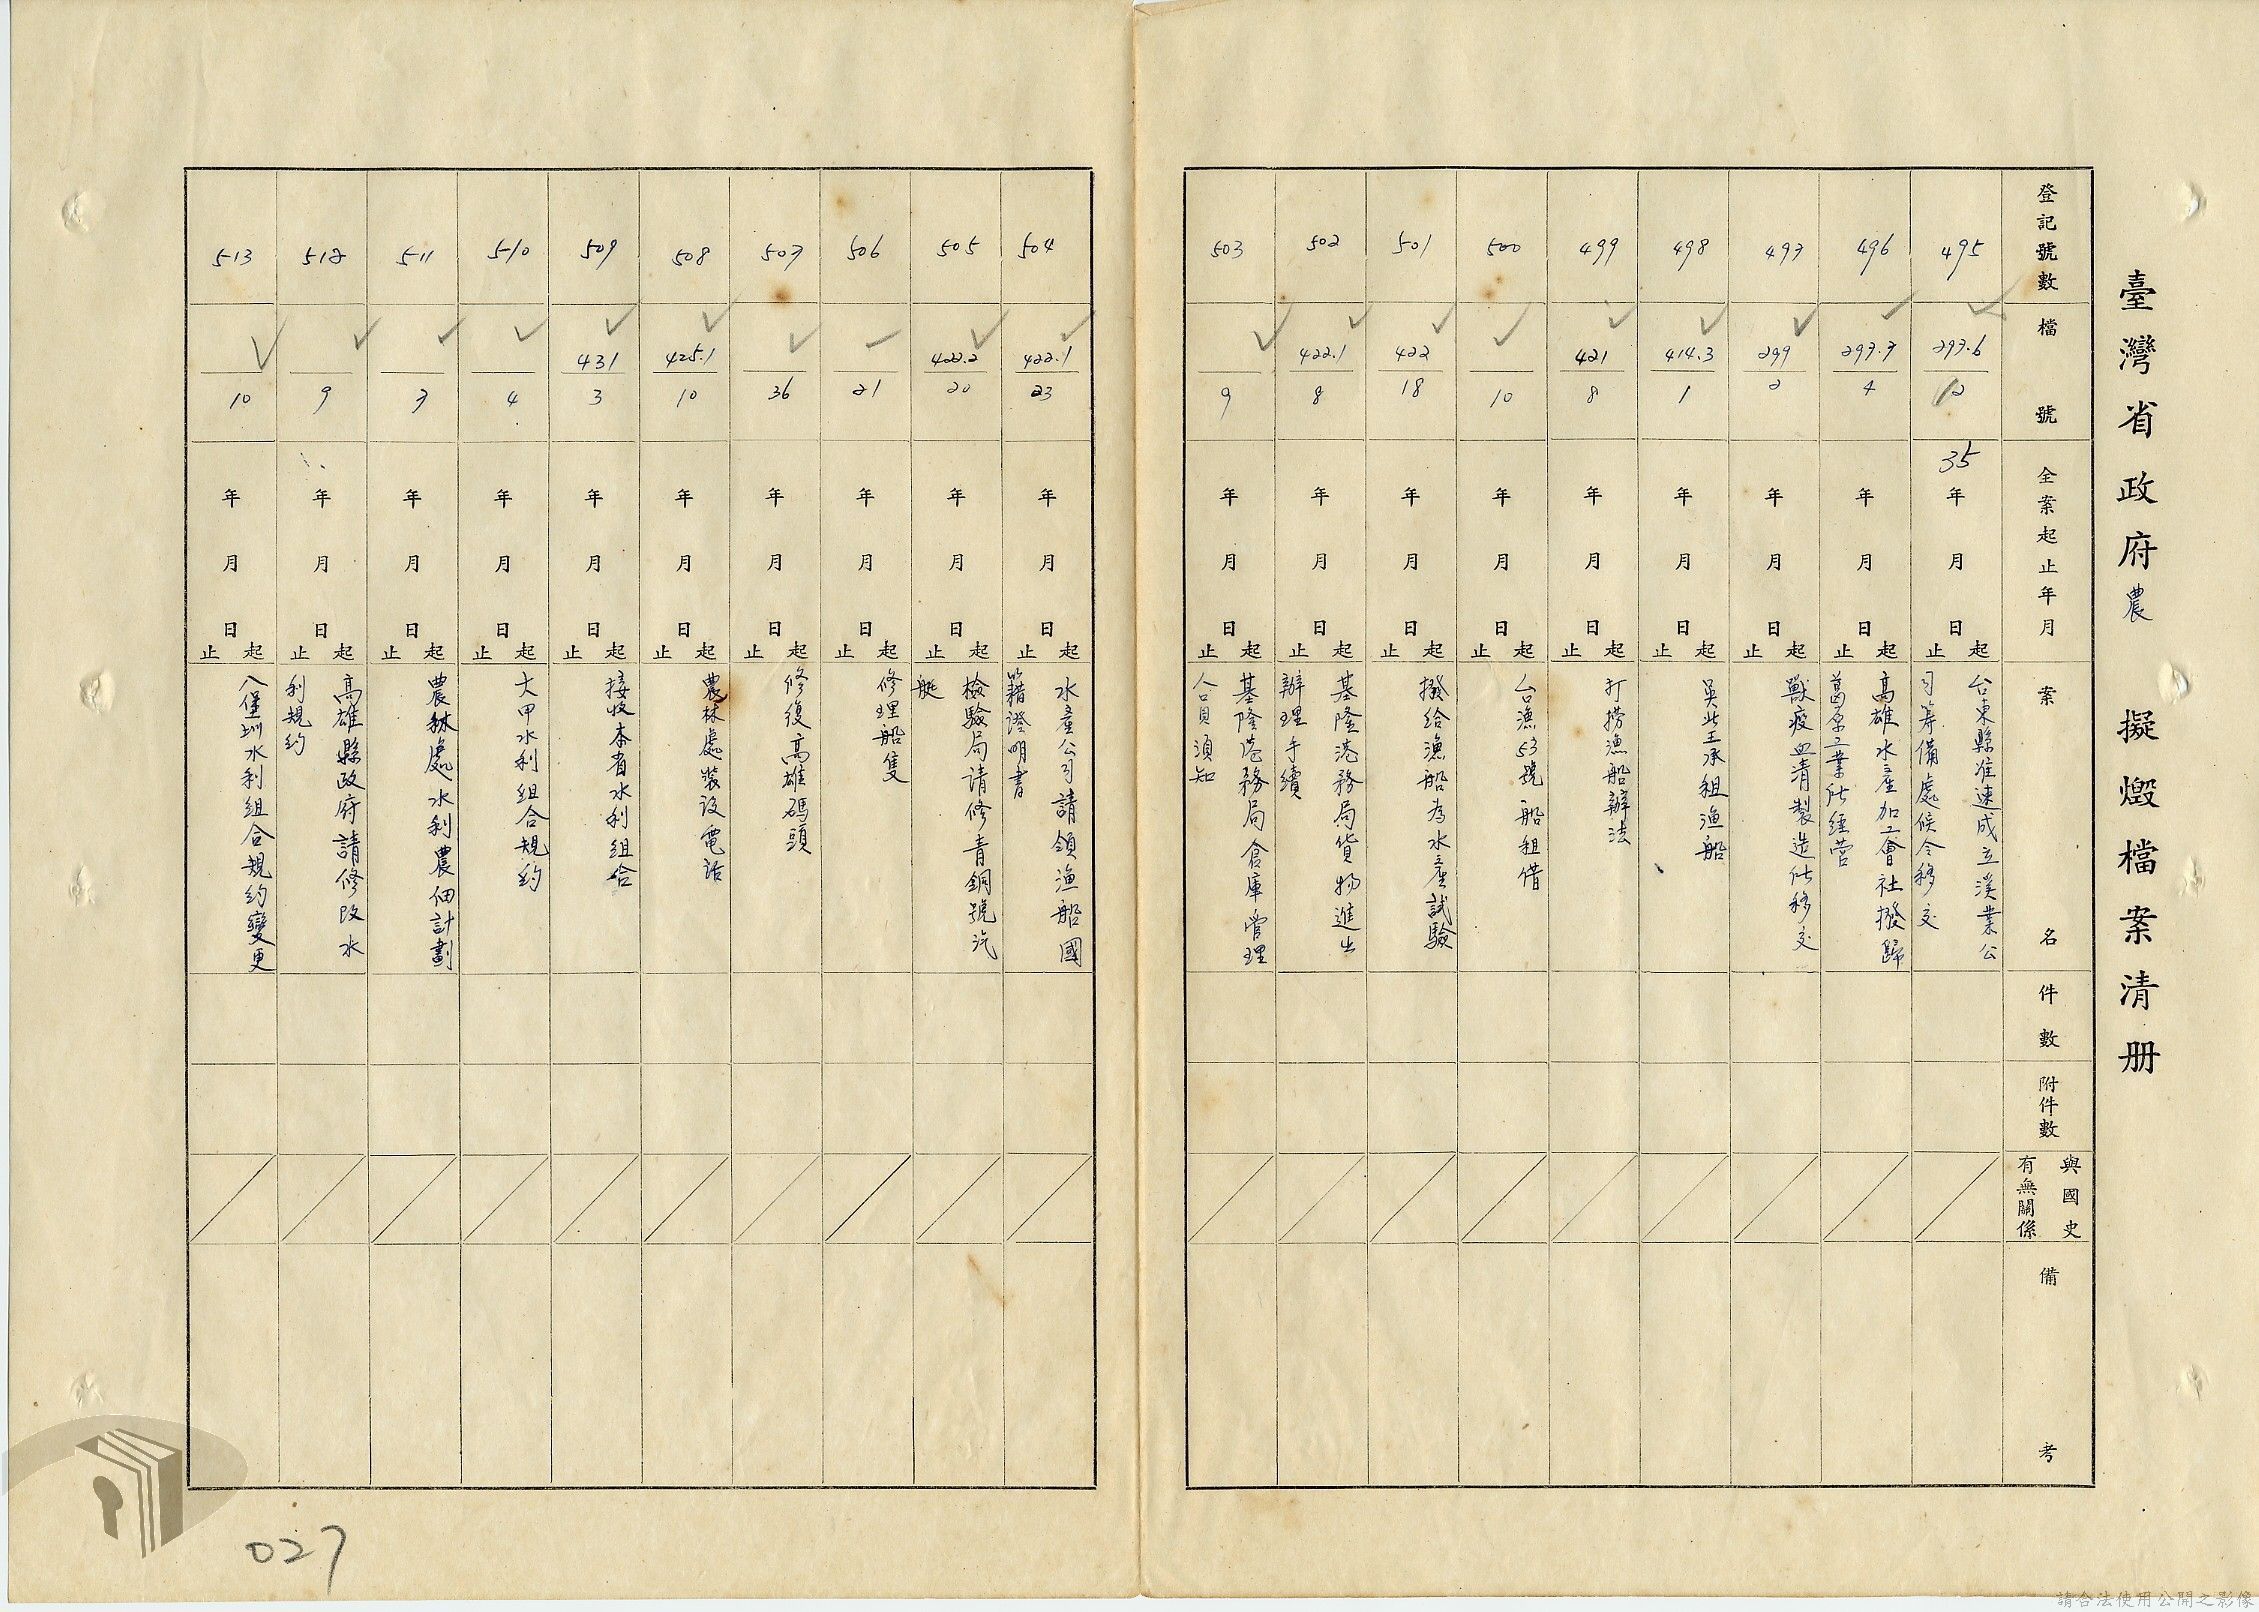 臺灣省政府農 擬燬檔案清册
登記號數
檔號
全案起止年月
案名
件數
附件數
與國史
有無關係
備考
495
293.6
12
35年月日起止
台東縣准速成立漢業公
司籌備處候令移交
496
293.7
4
年月日起止
高雄水產加工會社撥歸
葛原工業所經営
497
299
2
年月日起止
獸疫血清製造所移交
498
414.3
1
年月日起止
承租漁船
499
421
8
年月日起止
打撈漁船辦法
500
10
年月日起止
台漁53號船租借
501
422
18
年月日起止
撥給漁船為水產試驗
502
422.1
8
年月日起止
基隆港務局貨物進出
辦理手續
503
9
年月日起止
基隆港務局倉庫管理
人員須知
504
422.1
23
年月日起止
水產公司請領漁船國
籍證明書
505
422.2
20
年月日起止
檢驗局请修青銅號汽
艇
506
21
年月日起止
修理船隻
507
36
年月日起止
修復高雄碼頭
508
425.1
10
年月日起止
農林處裝设電话
509
431
3
年月日起止
接收本省水利組合
510
4
年月日起止
大甲水利組合規約
511
7
年月日起止
農林處水利農佃計劃
512
9
年月日起止
高雄縣政府請修改水
利規約
513
10
年月日起止
八堡圳水利組合規約變更
027
請合法使用公開之影像